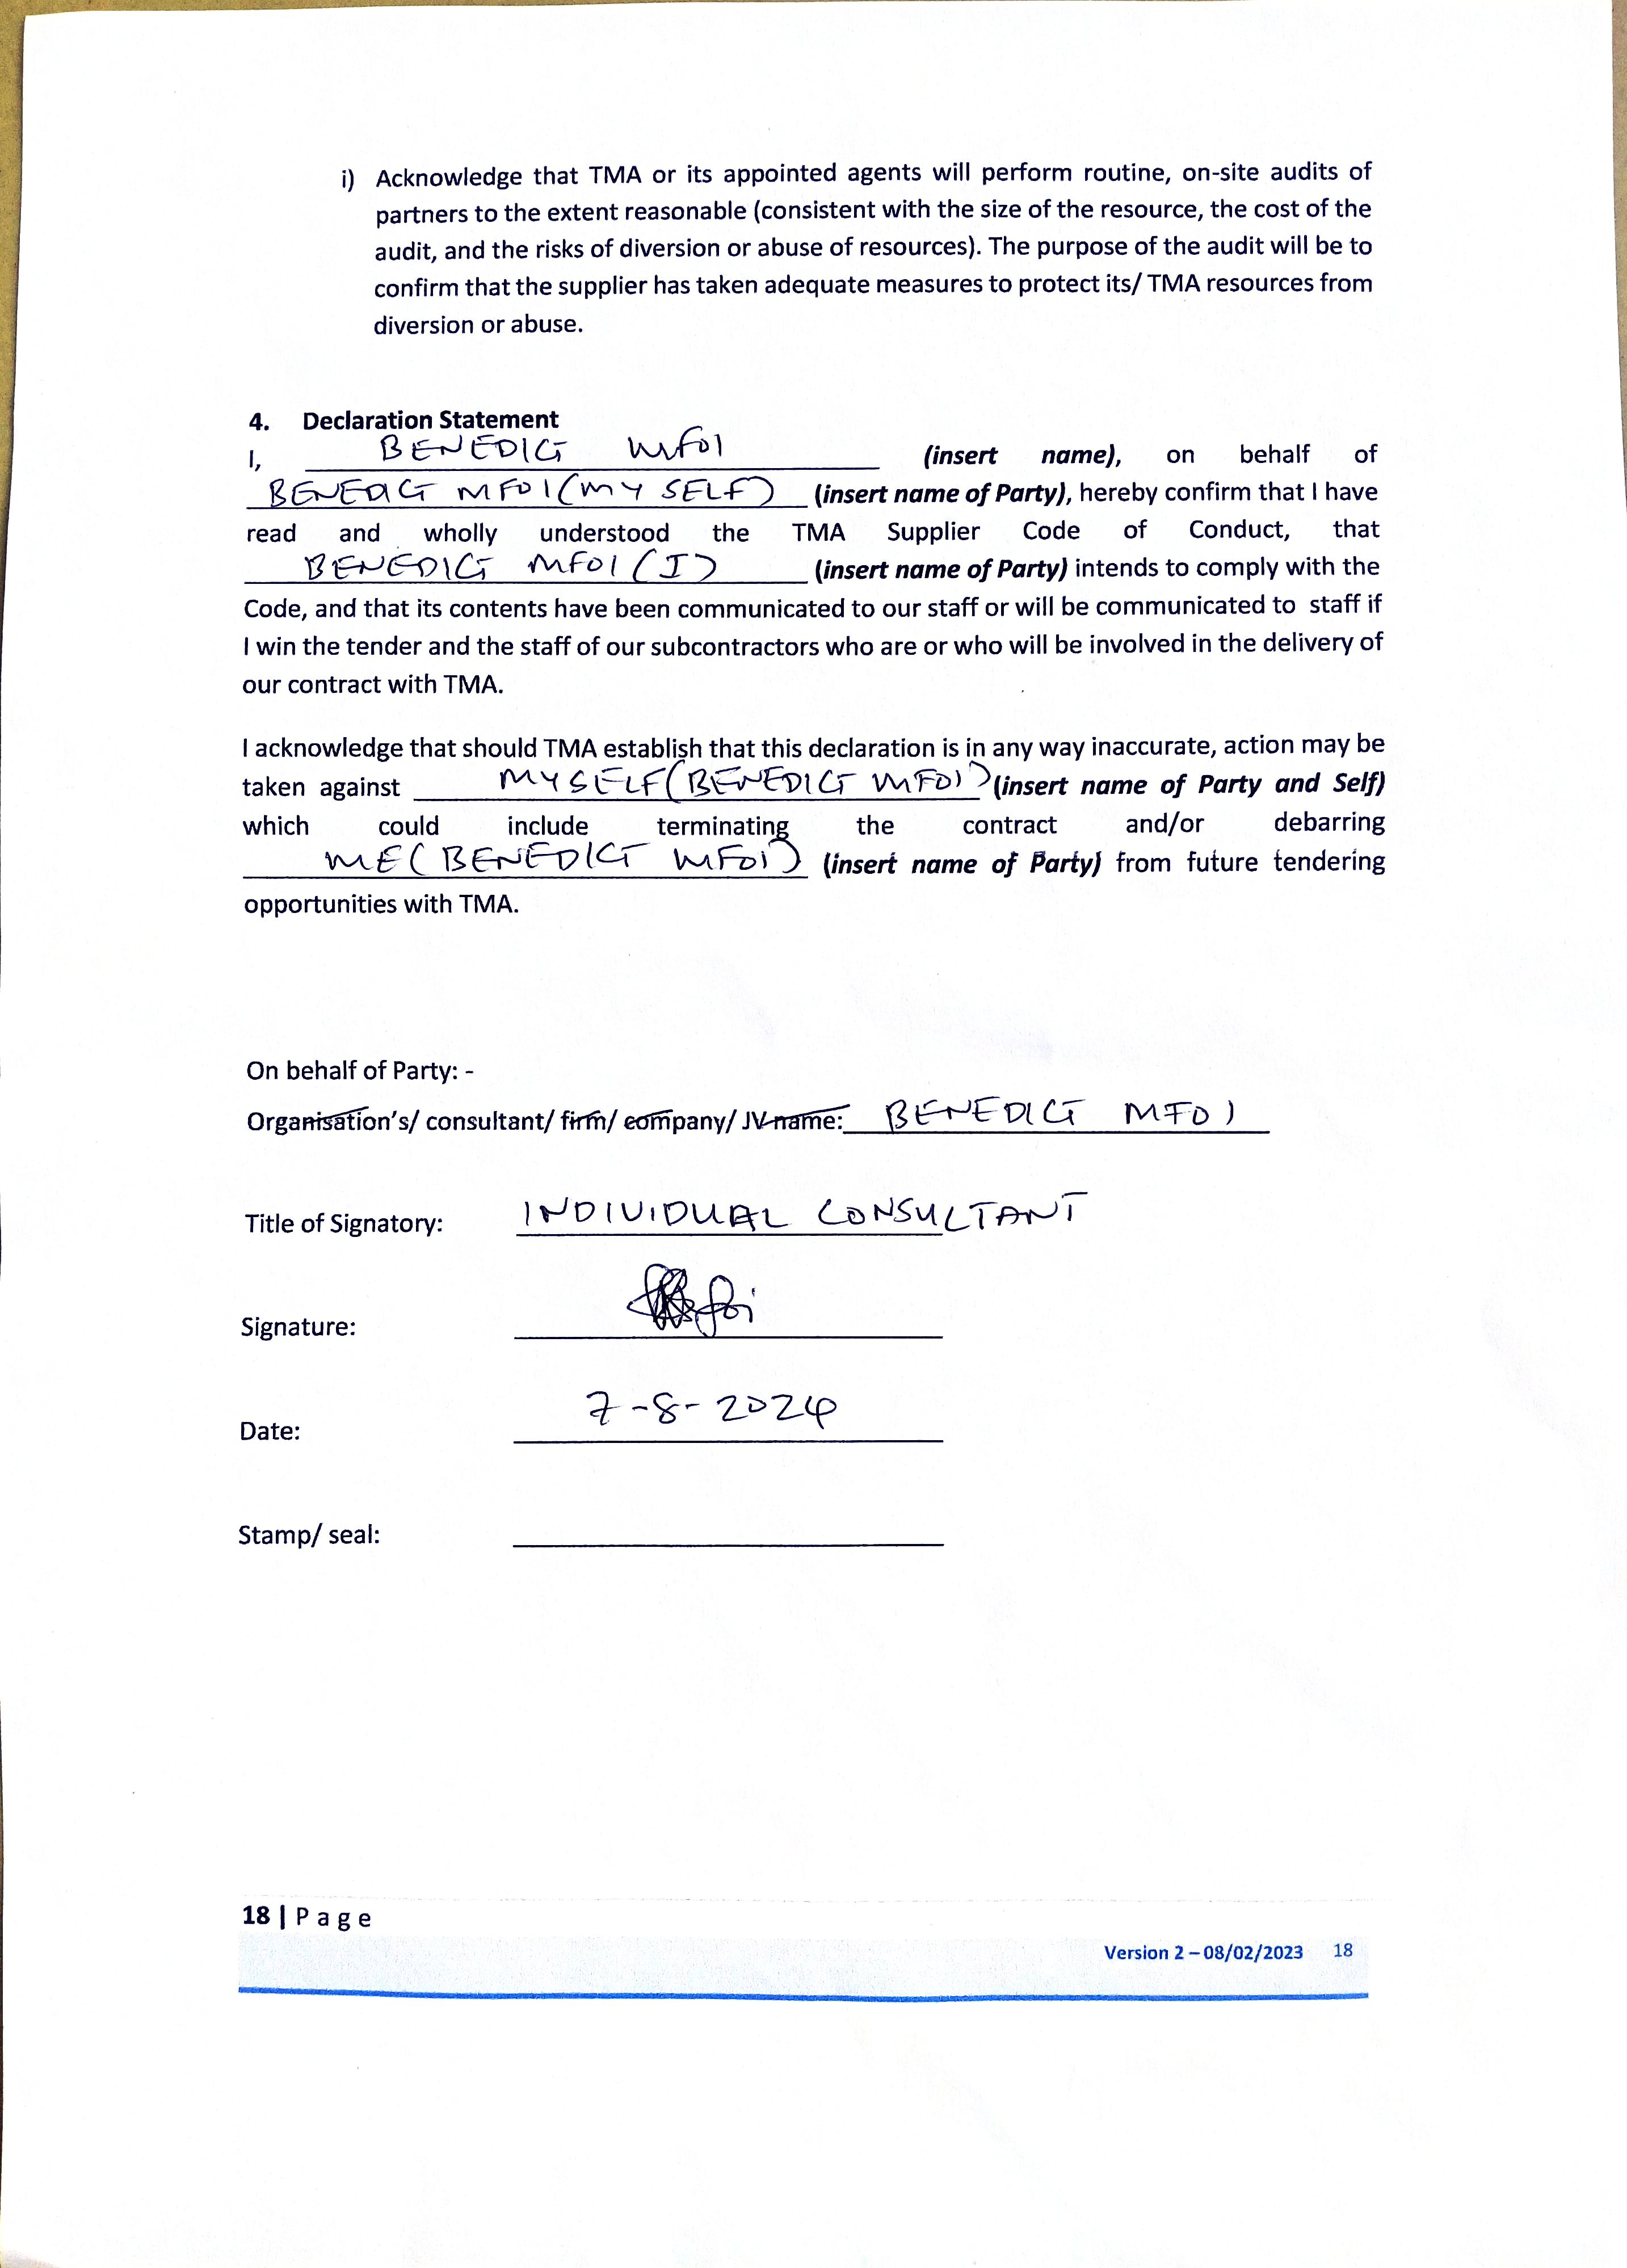 i) Acknowledge that TMA or its appointed agents will perform routine, on-site audits of
partners to the extent reasonable (consistent with the size of the resource, the cost of the
audit, and the risks of diversion or abuse of resources). The purpose of the audit will be to
confirm that the supplier has taken adequate measures to protect its/ TMA resources from
diversion or abuse.
4. Declaration Statement
I, BENEDICT MFOI (insert name), on behalf of
BENEDICT MFOI (MY SELF) (insert name of Party), hereby confirm that I have
read and wholly understood the TMA Supplier Code of Conduct, that
BENEDICT MFOI (I) (insert name of Party) intends to comply with the
Code, and that its contents have been communicated to our staff or will be communicated to staff if
I win the tender and the staff of our subcontractors who are or who will be involved in the delivery of
our contract with TMA.
I acknowledge that should TMA establish that this declaration is in any way inaccurate, action may be
taken against MYSELF (BENEDICT MFOI) (insert name of Party and Self)
which could include terminating the contract and/or debarring
ME (BENEDICT MFOI) (insert name of Party) from future tendering
opportunities with TMA.
On behalf of Party: -
Organisation's/ consultant/ firm/ company/ JV name: BENEDICT MFOI
Title of Signatory: INDIVIDUAL CONSULTANT
Signature:
Date: 7-8-2024
Stamp/ seal:
18 | Page
Version 2 – 08/02/2023 18